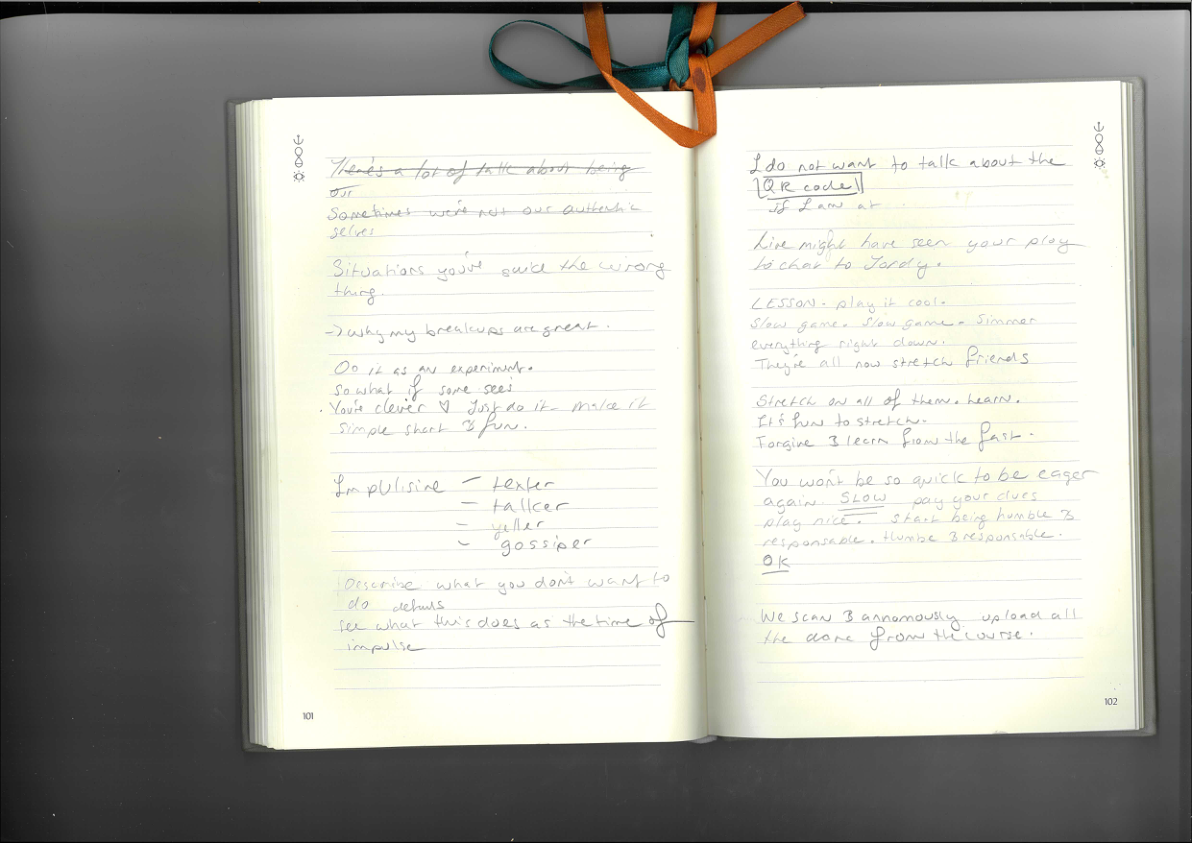 There's a lot of talk about being
our
Sometimes we're not our authentic
selves
Situations you've the wrong
thing.
→ why my breakups are great.
Do it as an experiment.
So what if some sees
You're clever ♡ Just do it - make it
simple short & fun.
Impulsive — texter
— talker
— yeller
— gossiper
Describe what you don't want to
do details
see what this does as the time of
impulse
101
I do not want to talk about the
QR code
if I am at
might have seen your play
to chat to Jordy.
LESSON. play it cool.
Slow game. Slow game. Simmer
everything right down.
They're all now stretch friends
Stretch on all of them. Learn.
It's fun to stretch.
Forgive & learn from the fast.
You won't be so quick to be eager
again. SLOW pay your dues
play nice. Start being humble &
responsable. Humbe & responsable.
OK
We scan & annomously upload all
the done from the course.
102